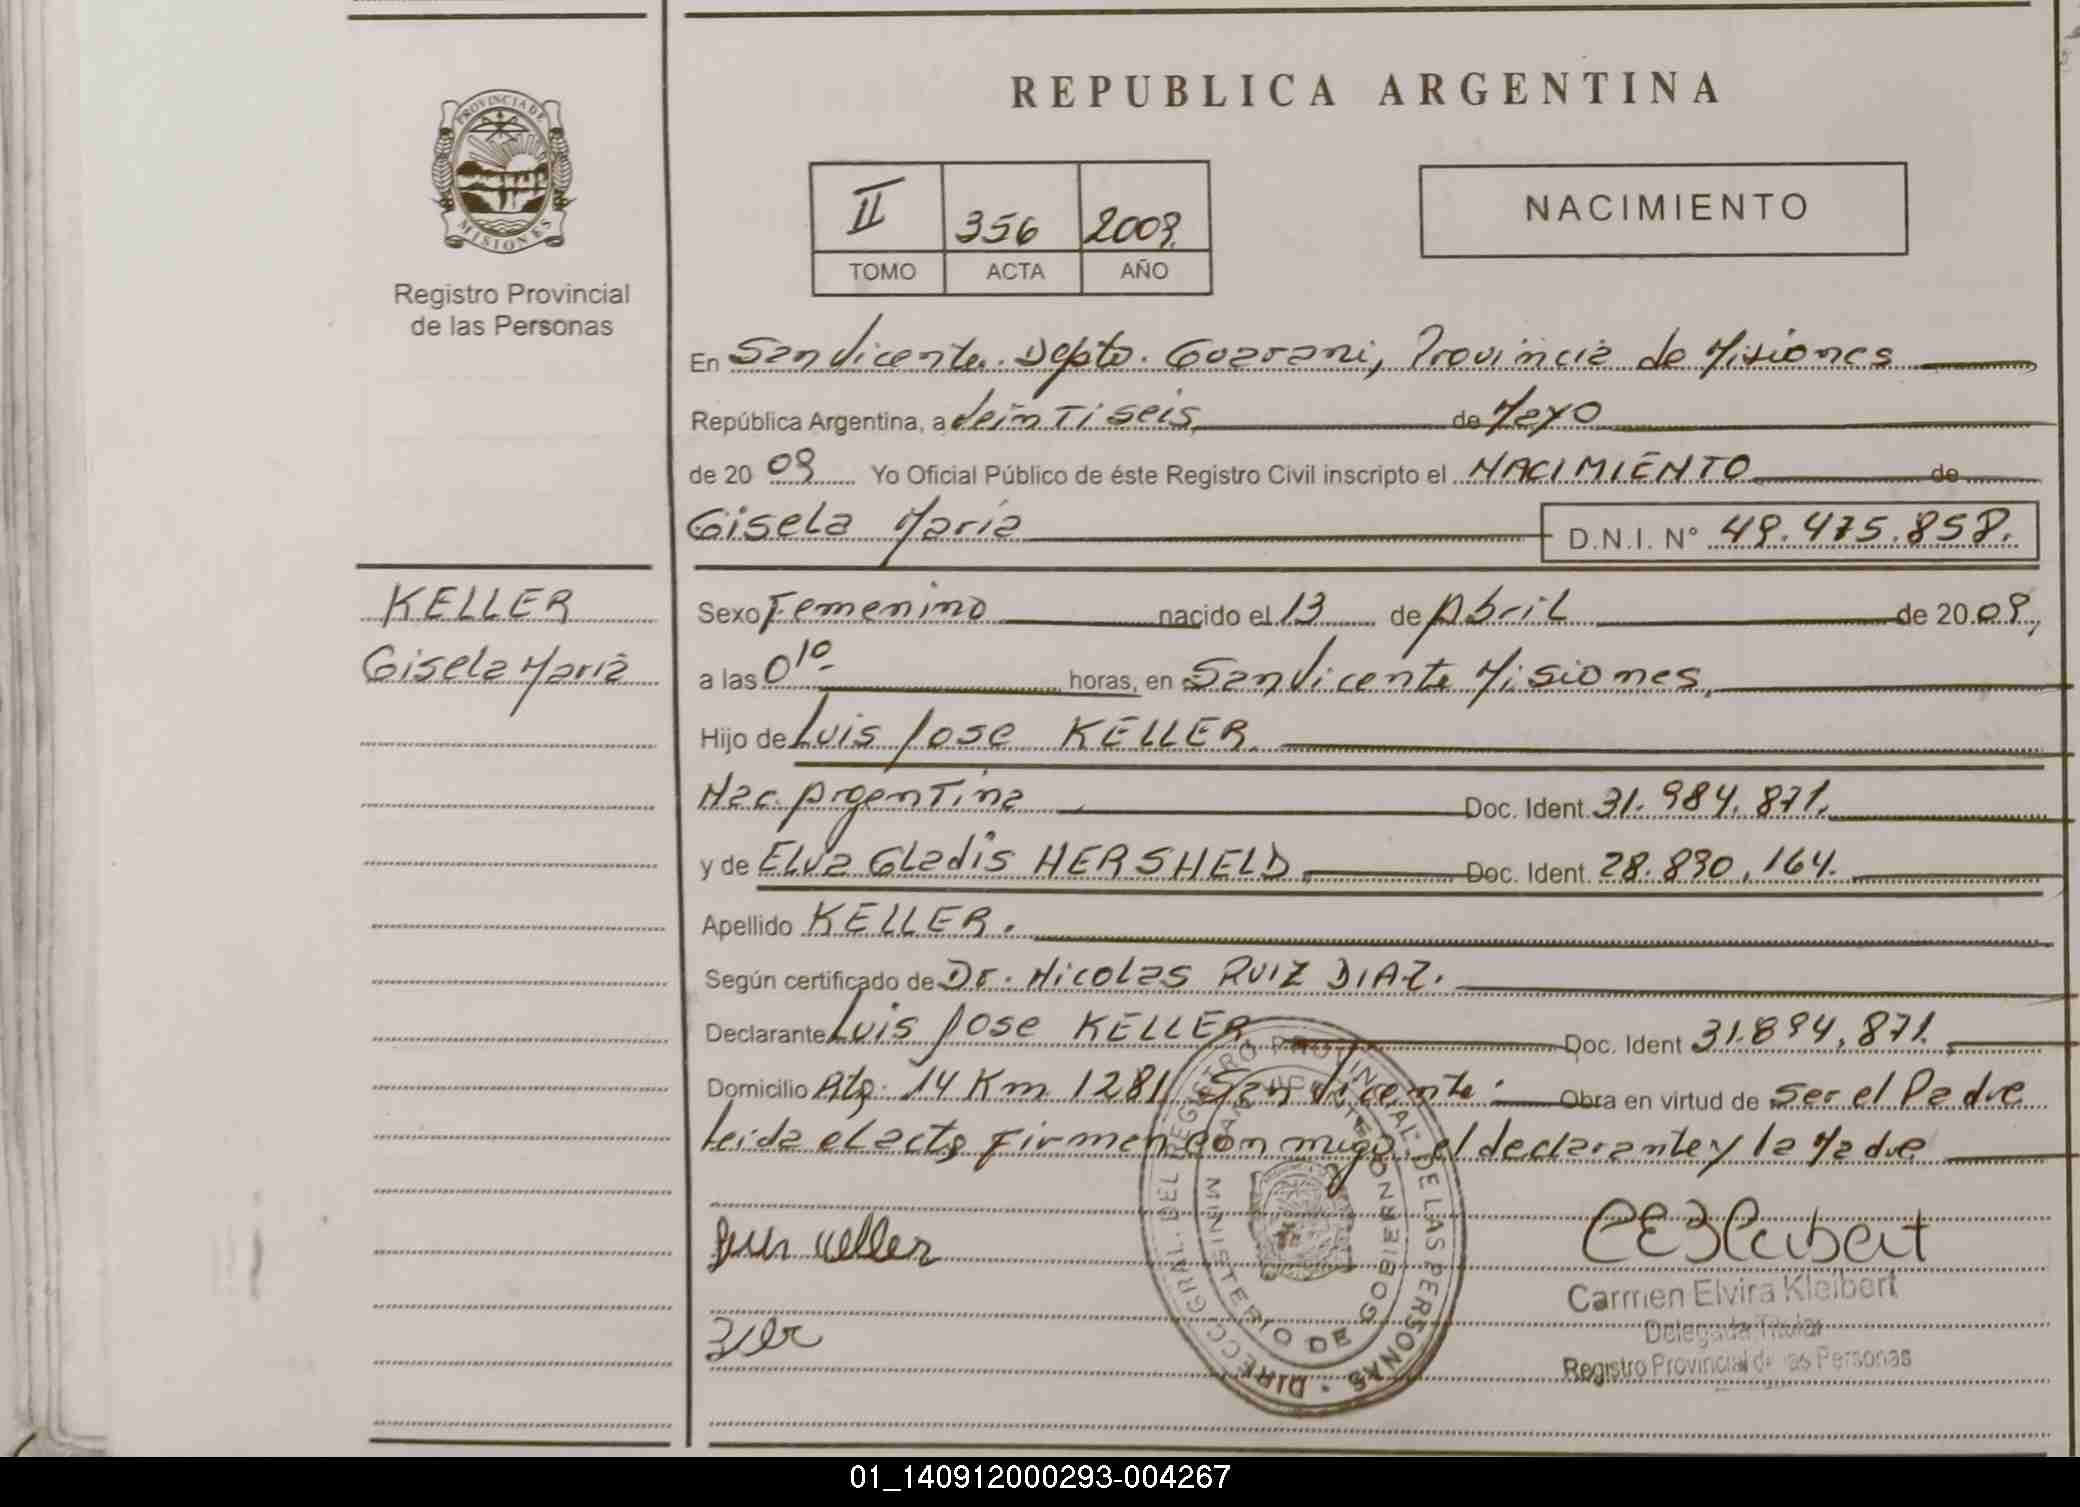 REPUBLICA ARGENTINA
PROVINCIA DE MISIONES
Registro Provincial
de las Personas
II 356 2009.
TOMO ACTA AÑO
NACIMIENTO
En San Vicente. Depto. Guarani, Provincia de Misiones
República Argentina, a Veintiseis de Mayo
de 20 09 Yo Oficial Público de éste Registro Civil inscripto el NACIMIENTO de
Gisela Maria D.N.I. N° 49.475.858.
KELLER
Gisela Maria
Sexo Femenino nacido el 13 de Abril de 20 09,
a las 01º horas, en San Vicente Misiones.
Hijo de Luis Jose KELLER
Nac. Argentina Doc. Ident. 31.984.871.
y de Elva Gladis HERSHELD Doc. Ident. 28.890.164.
Apellido KELLER.
Según certificado de Dr. Nicolas RUIZ DIAZ.
Declarante Luis Jose KELLER Doc. Ident 31.894.871.
Domicilio Rta. 14 Km 1281 San Vicente. Obra en virtud de Ser el Padre
Leida el acta, firman con migo. el declarante y la Madre
Luis Keller
DIRECC. GRAL. DEL REGISTRO PROVINCIAL DE LAS PERSONAS
MINISTERIO DE GOBIERNO
SAN VICENTE
Carmen Elvira Kleibert
Delegada Titular
Registro Provincial de las Personas
01_140912000293-004267